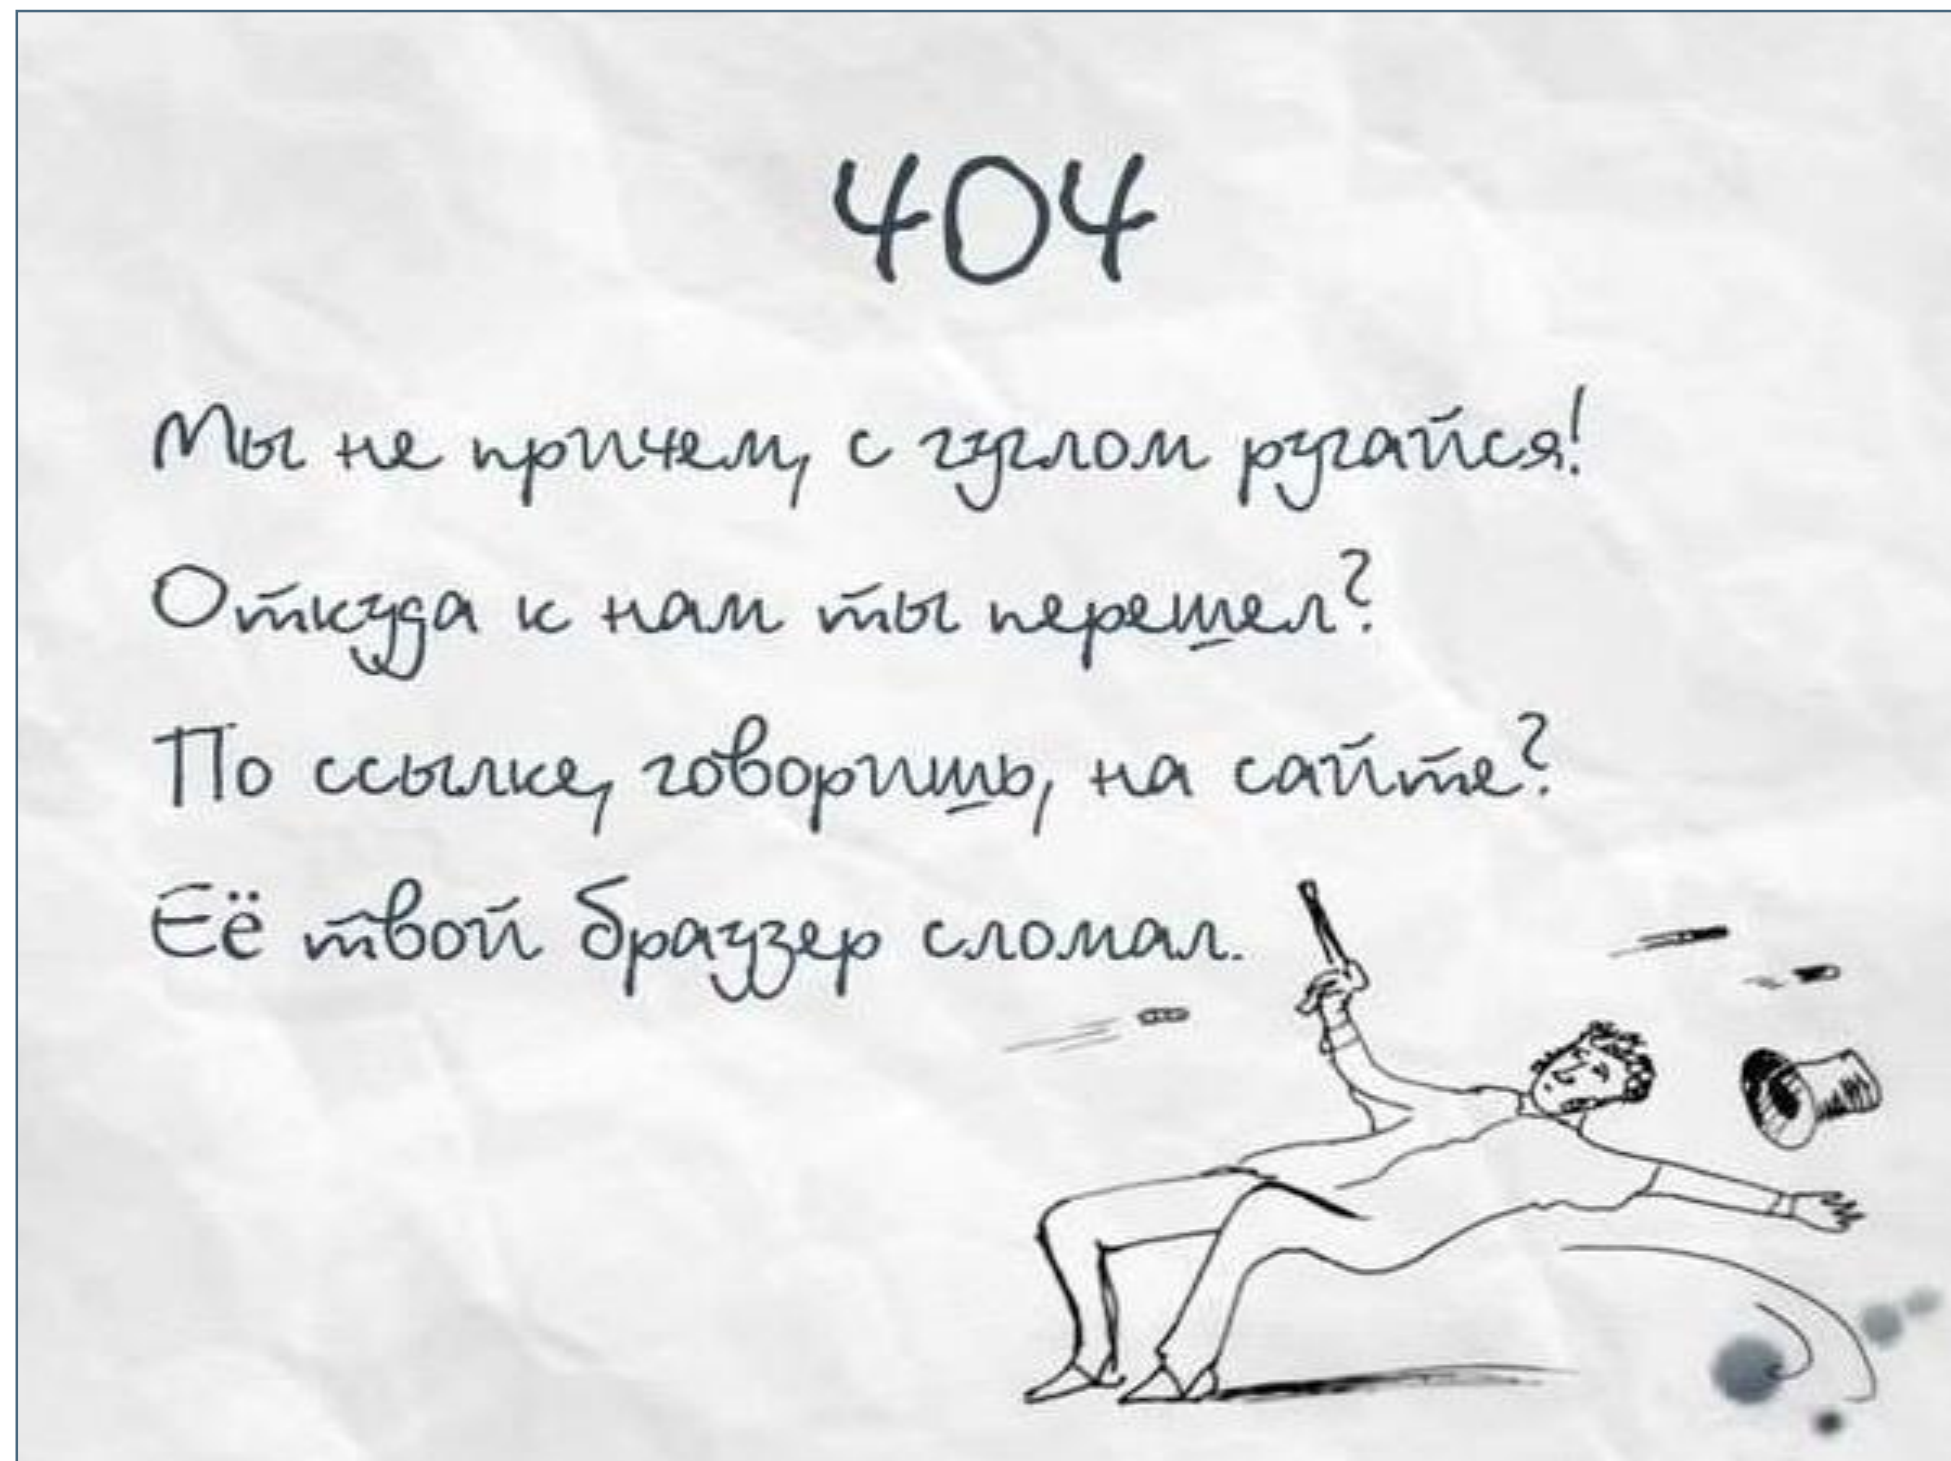 404
Мы не причем, с гуглом ругайся!
Откуда к нам ты перешел?
По ссылке, говоришь, на сайте?
Её твой браузер сломал.